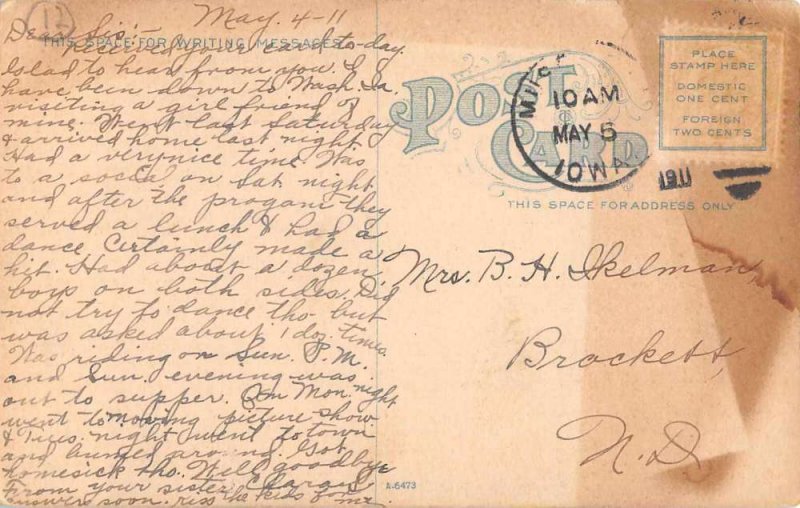 12
May. 4-11
Dear Sis:-
THIS SPACE FOR WRITING MESSAGES
Received your card to-day.
Glad to hear from you. I
have been down to Wash. Ia.
visiting a girl friend of
mine. Went last Saturday
& arrived home last night.
Had a very nice time. Was
to a social on Sat. night
and after the progam they
served a lunch & had a
dance. Certainly made a
hit. Had about a dozen
boys on both sides. Did
not try to dance tho- but
was asked about 1 doz. times.
Was riding on Sun. P.M.
and Sun. evening was
out to supper. On Mon. night
went to moving picture show
& Tues. night went to town
and bumed around. Got
homesick tho. Well goodbye
From your sister
answere soon. kiss the kids for me
POST CARD
THIS SPACE FOR ADDRESS ONLY
PLACE
STAMP HERE
DOMESTIC
ONE CENT
FOREIGN
TWO CENTS
10 AM
MAY 5
IOWA
1911
Mrs. B. H. Ikelman,
Brockett,
N.D.
A-6473